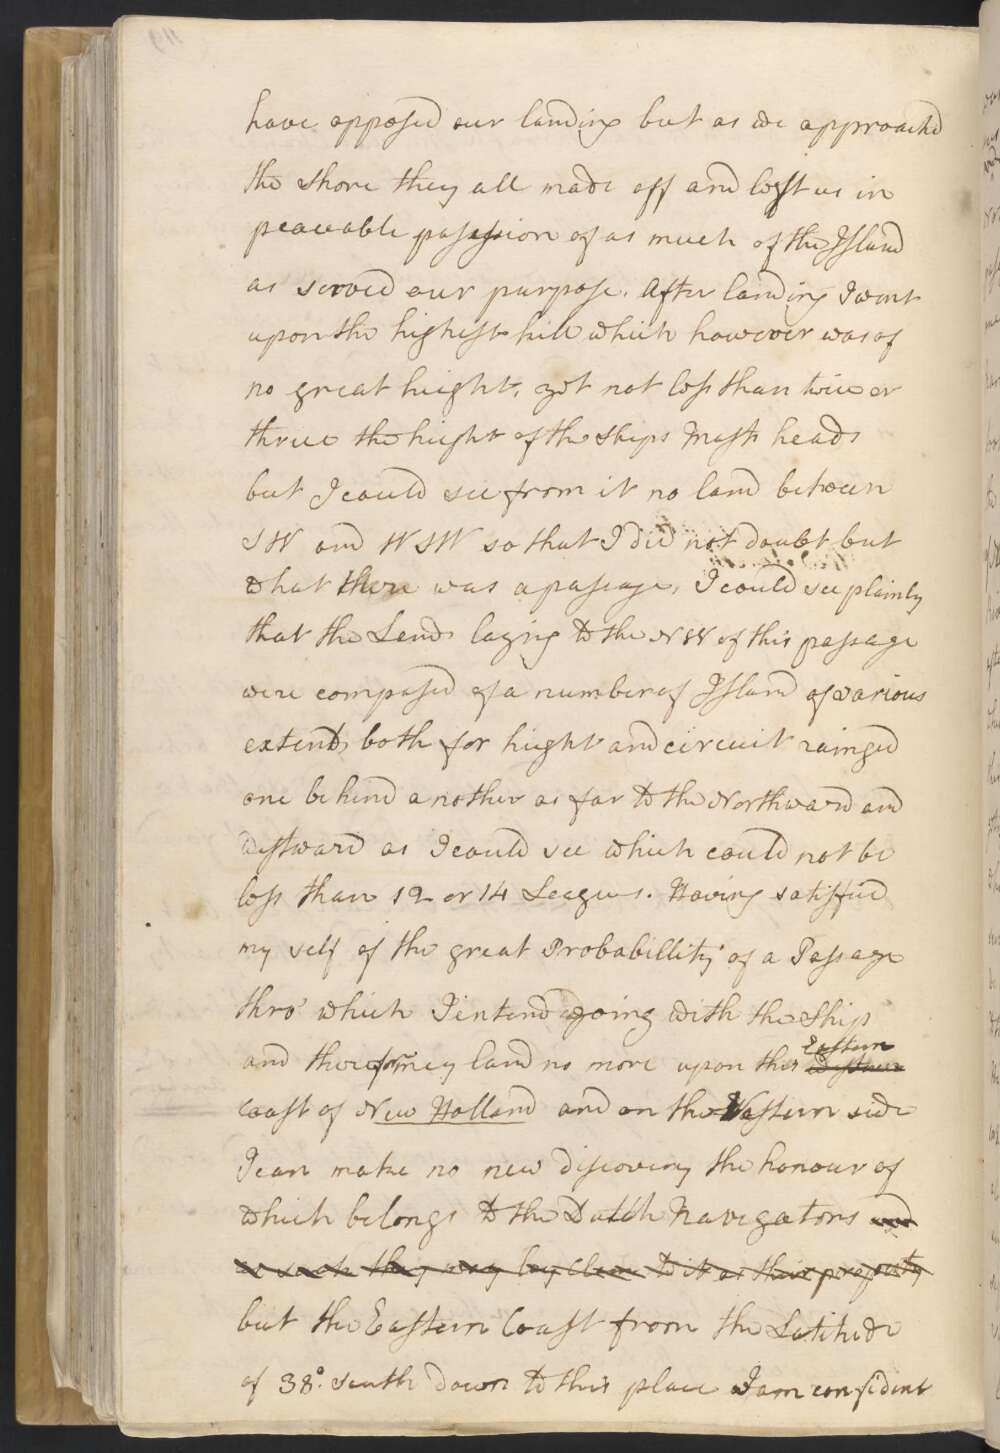 have opposed our landing but as we approached
the shore they all made off and left us in
peaceable possession of as much of the Island
as served our purpose. After landing I went
upon the highest hill which however was of
no great height, yet not less than twice or
thrice the height of the Ships Mast heads
but I could see from it no land between
SW and WSW so that I did not doubt but
what there was a passage, I could see plainly
that the Lands laying to the NW of this passage
were composed of a number of Island of various
extent, both for hight and circuit rainged
one behind another as far to the Northward and
Westward as I could see which could not be
less than 12 or 14 Leagues. Having satisfied
my self of the great Probabillity of a Passage
thro' which I intend going with the Ship
and therefore may land no more upon this Eastern
coast of New Holland and on the Western side
I can make no new discovery the honour of
which belongs to the Dutch Navigators and
as such they may lay claim to it as their property
but the Eastern Coast from the Latitude
of 38°. South down to this place I am confident